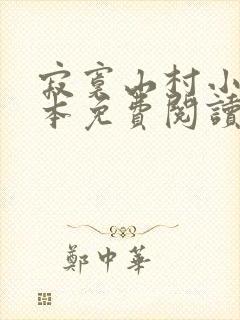 寂寞山村小
本免費閱讀
鄭中華